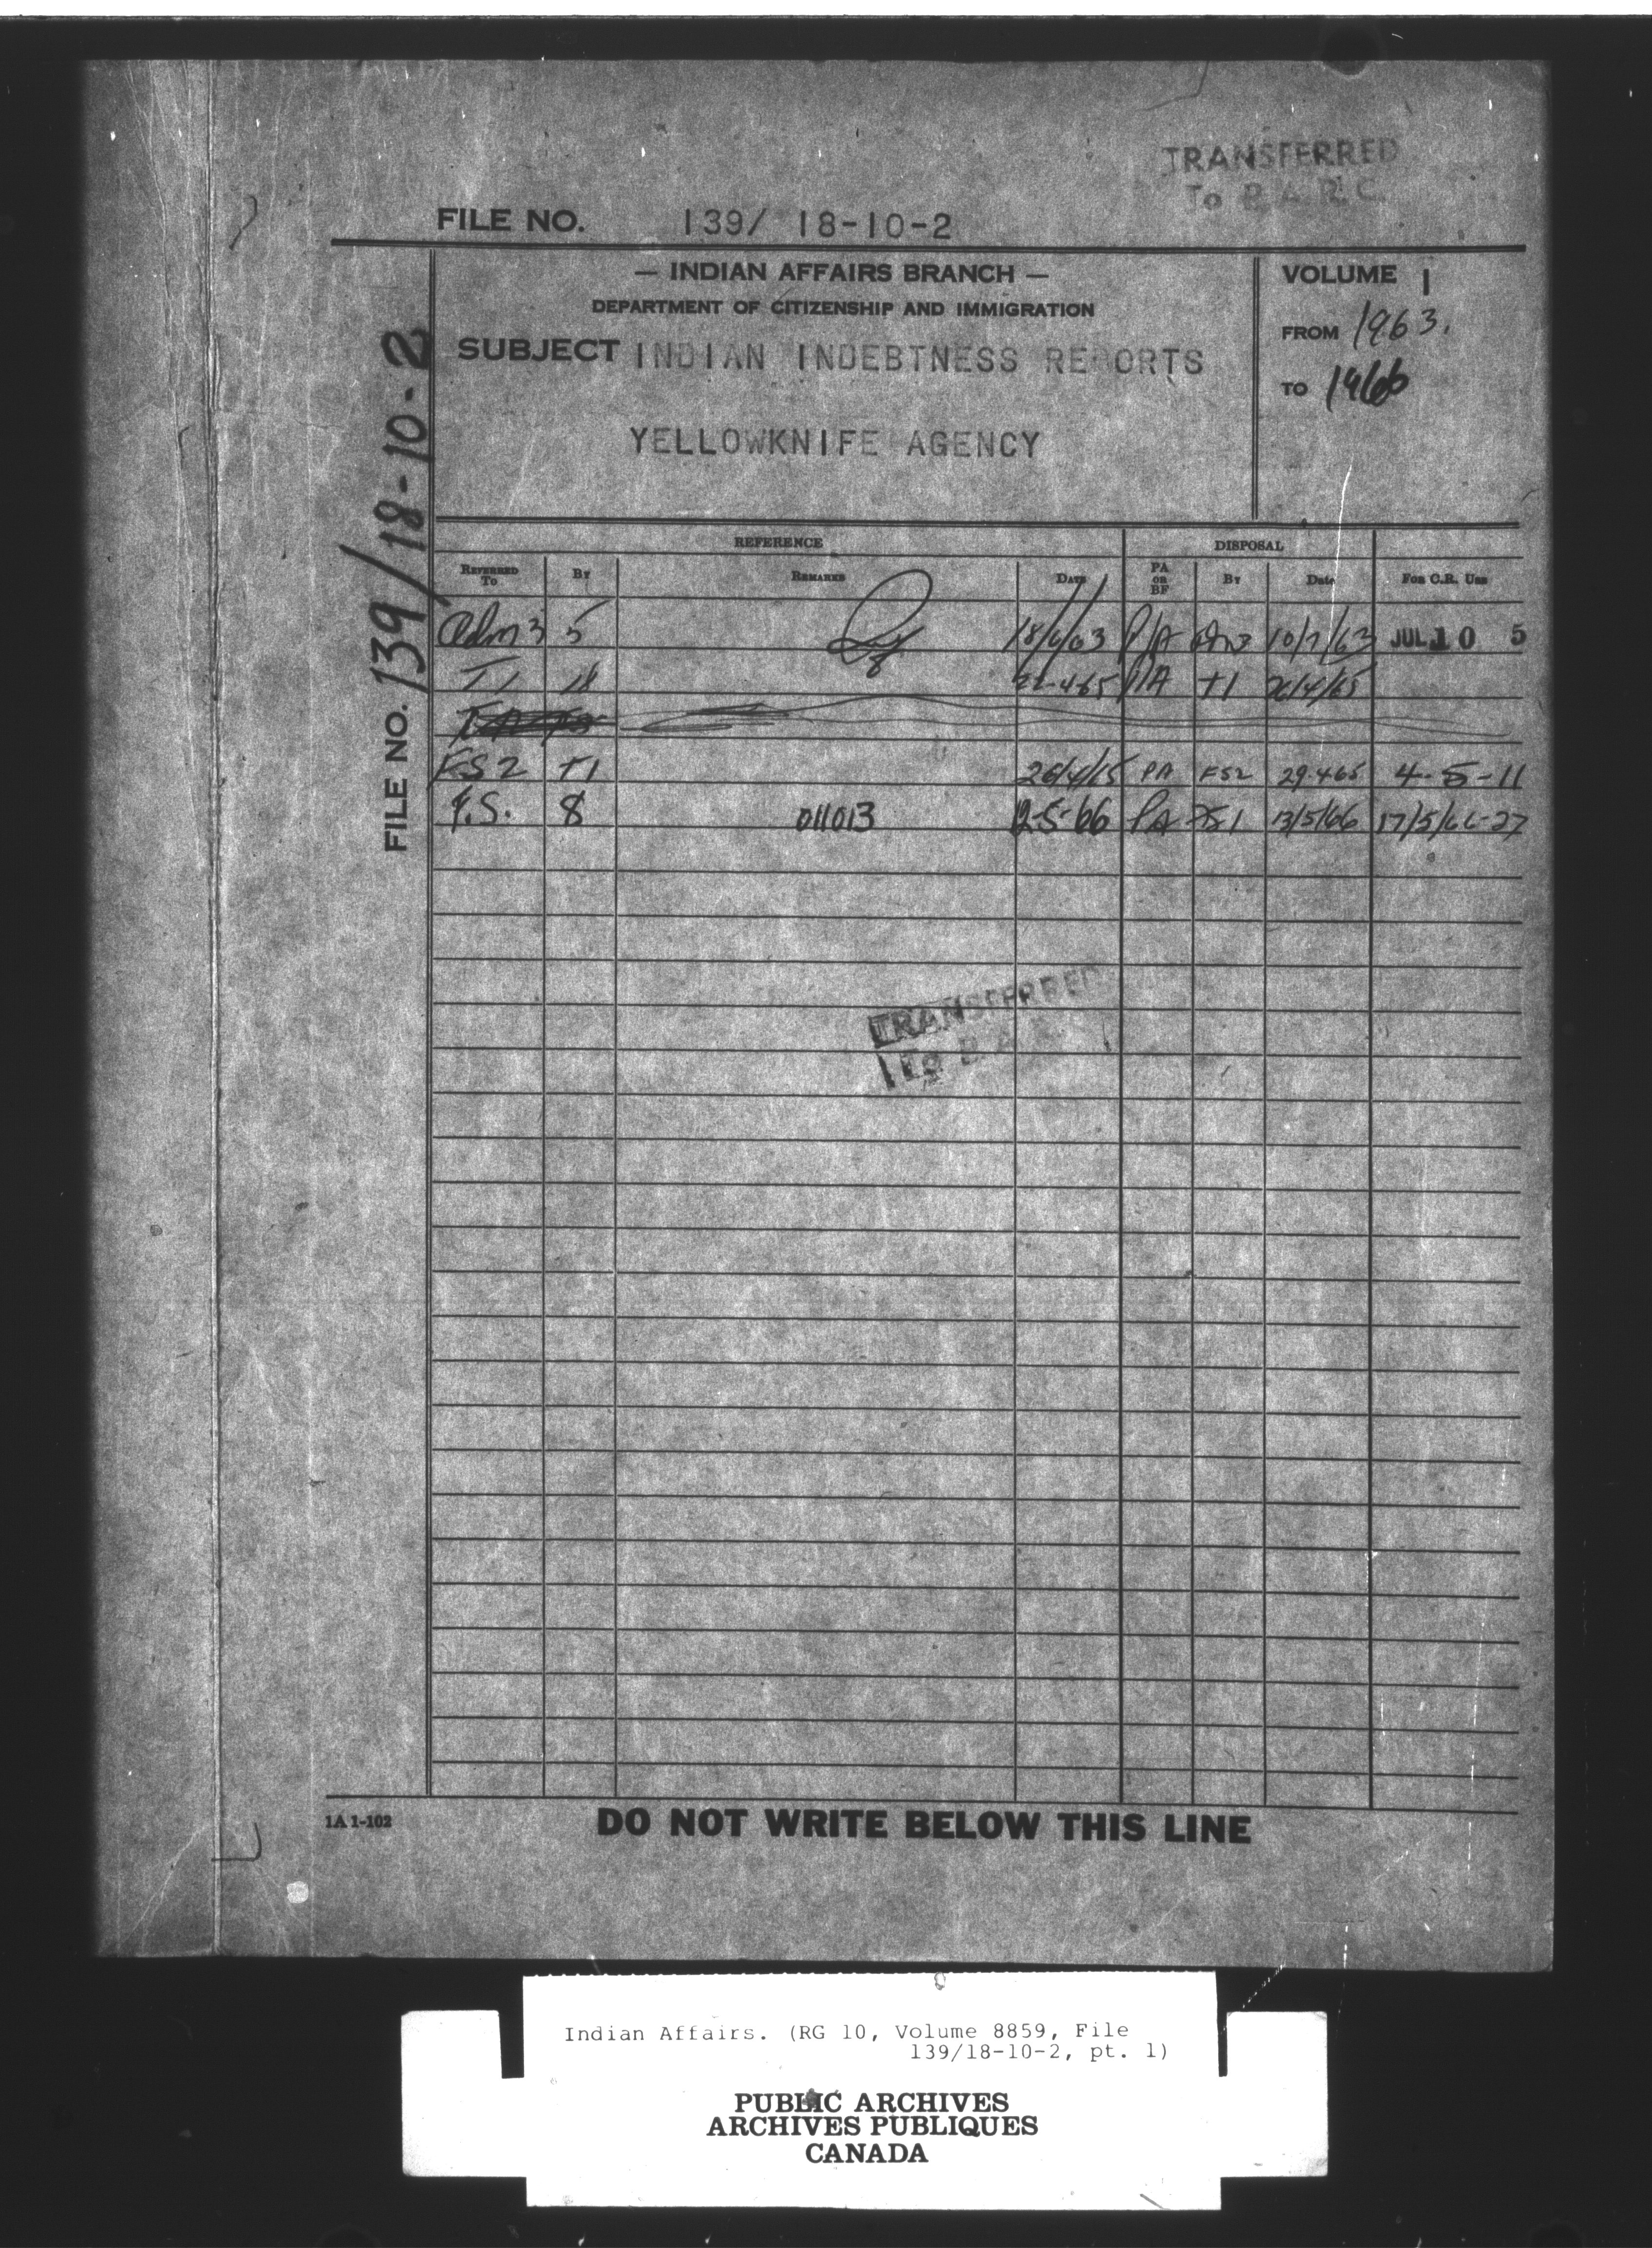 TRANSFERRED
To P.A.R.C.
FILE NO. 139/ 18-10-2
— INDIAN AFFAIRS BRANCH —
DEPARTMENT OF CITIZENSHIP AND IMMIGRATION
SUBJECT INDIAN INDEBTNESS REPORTS
YELLOWKNIFE AGENCY
VOLUME 1
FROM 1963.
TO 1966
FILE NO. 139/18-10-2
REFERENCE DISPOSAL
REFERRED TO BY REMARKS DATE PA OR BF BY Date FOR C.R. USE
Adm 3 5 18/6/63 P/A Adm3 10/7/63 JUL 10 5
T1 18 4-65 PA T1 26/4/65
FS2 T1 26/4/65 PA FS2 29-4-65 4-5-11
F.S. 8 011013 12-5-66 PA FS1 13/5/66 17/5/66-27
TRANSFERRED
To P.A.
1A 1-102
DO NOT WRITE BELOW THIS LINE
Indian Affairs. (RG 10, Volume 8859, File
139/18-10-2, pt. 1)
PUBLIC ARCHIVES
ARCHIVES PUBLIQUES
CANADA